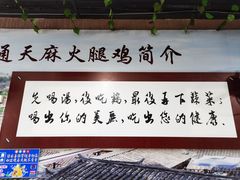 通天麻火腿鸡简介
先喝湯，後吃鷄，最後再下蔬菜；
喝出你的美麗，吃出您的健康．